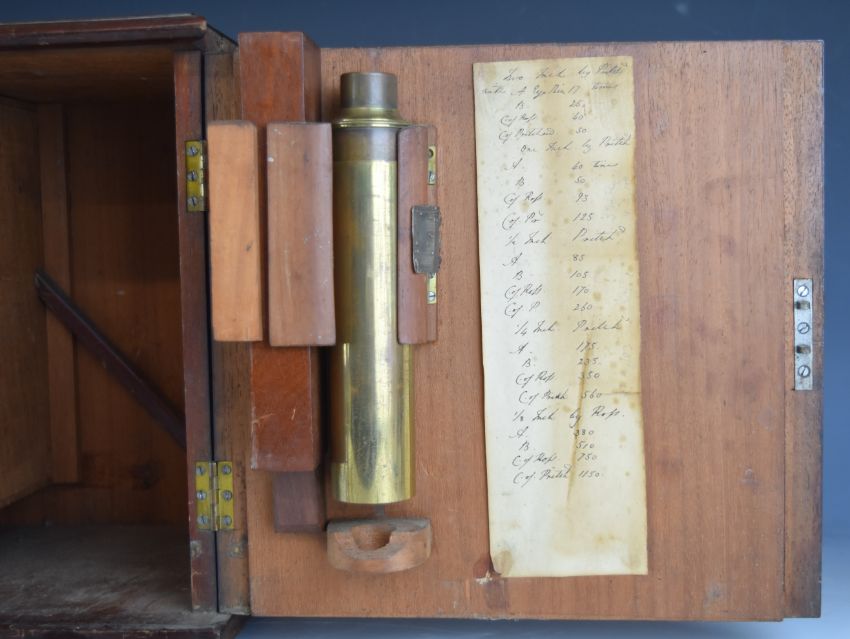 Two Inch by Pritchd
with A Eye Piece 17 times
B 26
C of Ross 60
C of Pritchard 50
One Inch by Pritchd
A 60 times
B 50
C of Ross 93
C of Pr 125
1/2 Inch Pritchd
A 85
B 105
C of Ross 170
C of P 260
1/4 Inch Pritchd
A 175
B 235
C of Ross 350
C of Pritch 560
1/8 Inch by Ross.
A 380
B 510
C of Ross 750
C of Pritchd 1150